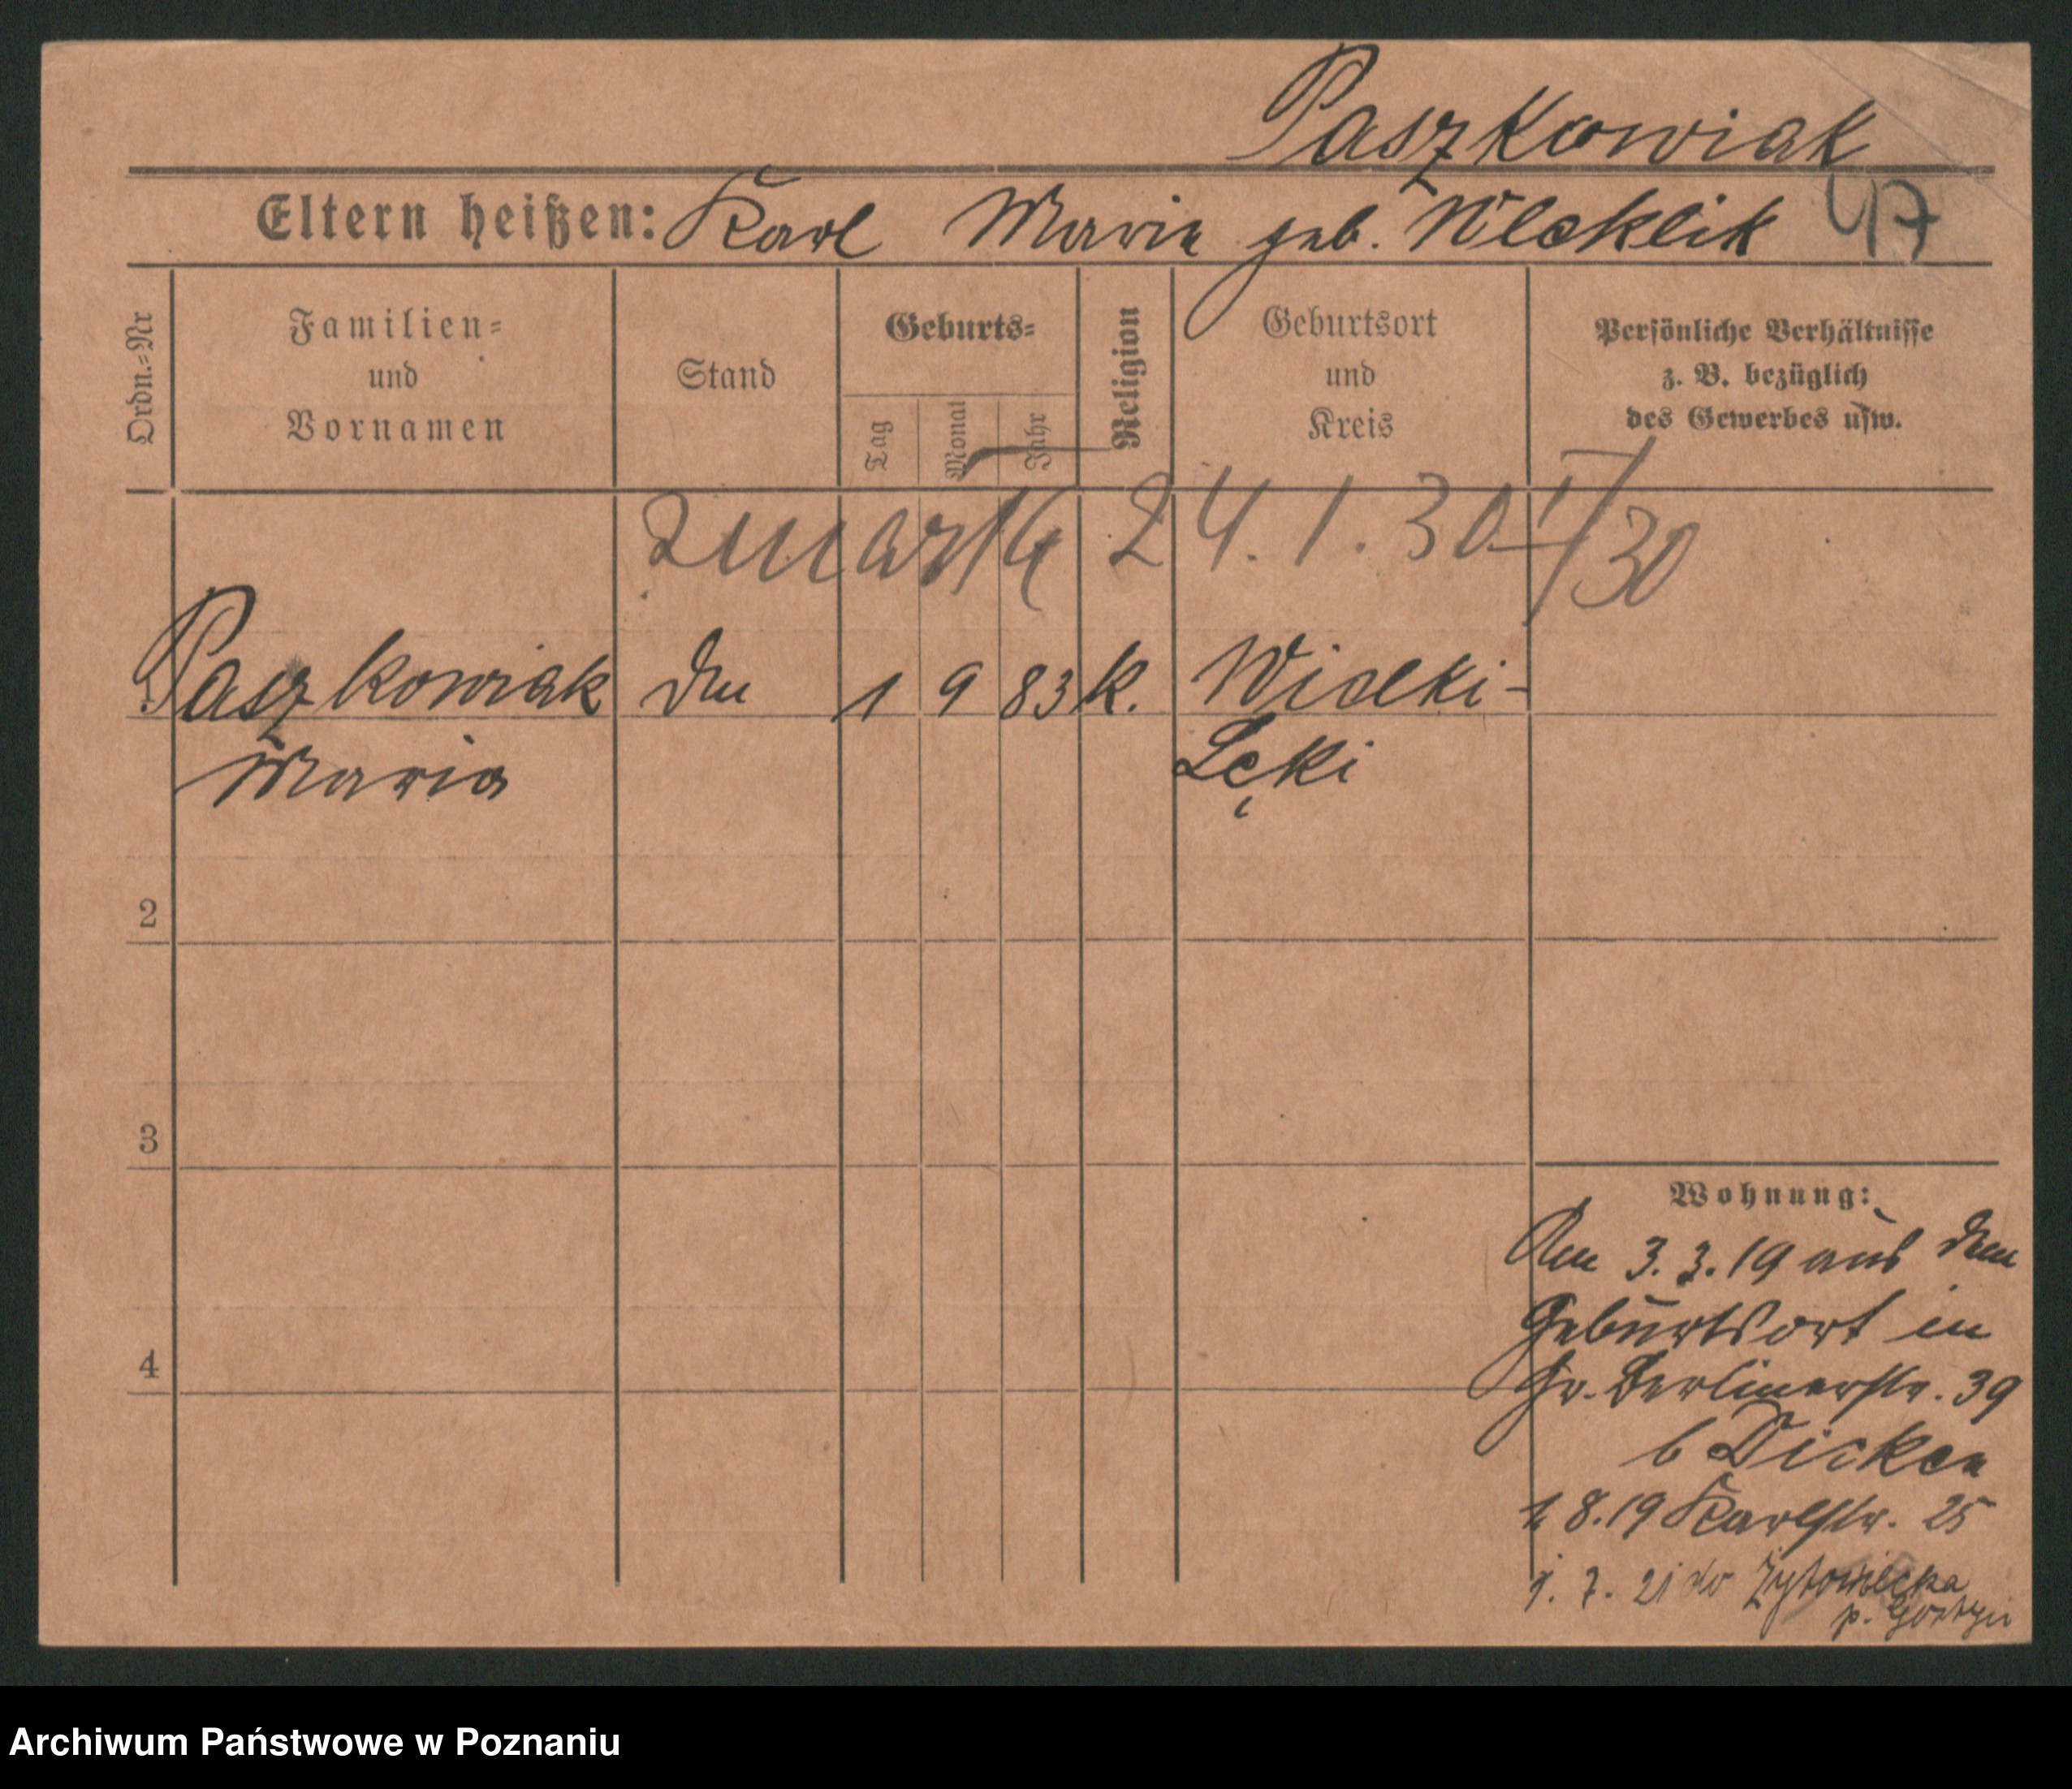 Paszkowiak
Eltern heißen: Karl Maria geb. Wleklik 47
Ordn.=Nr
Familien=
und
Vornamen
Stand
Geburts=
Tag
Monat
Jahr
Religion
Geburtsort
und
Kreis
Persönliche Verhältnisse
z. B. bezüglich
des Gewerbes usw.
zmarła 24.1.30 /30
Paszkowiak 1 9 83 k. Wielki-
Maria Lęki
2
3
4
Wohnung:
Am 3.3.19 aus dem
Geburtsort in
Gr. Berlinerstr. 39
b Dicken
8.19 Karlstr. 25
7. 21 do
p. Gostyń
Archiwum Państwowe w Poznaniu